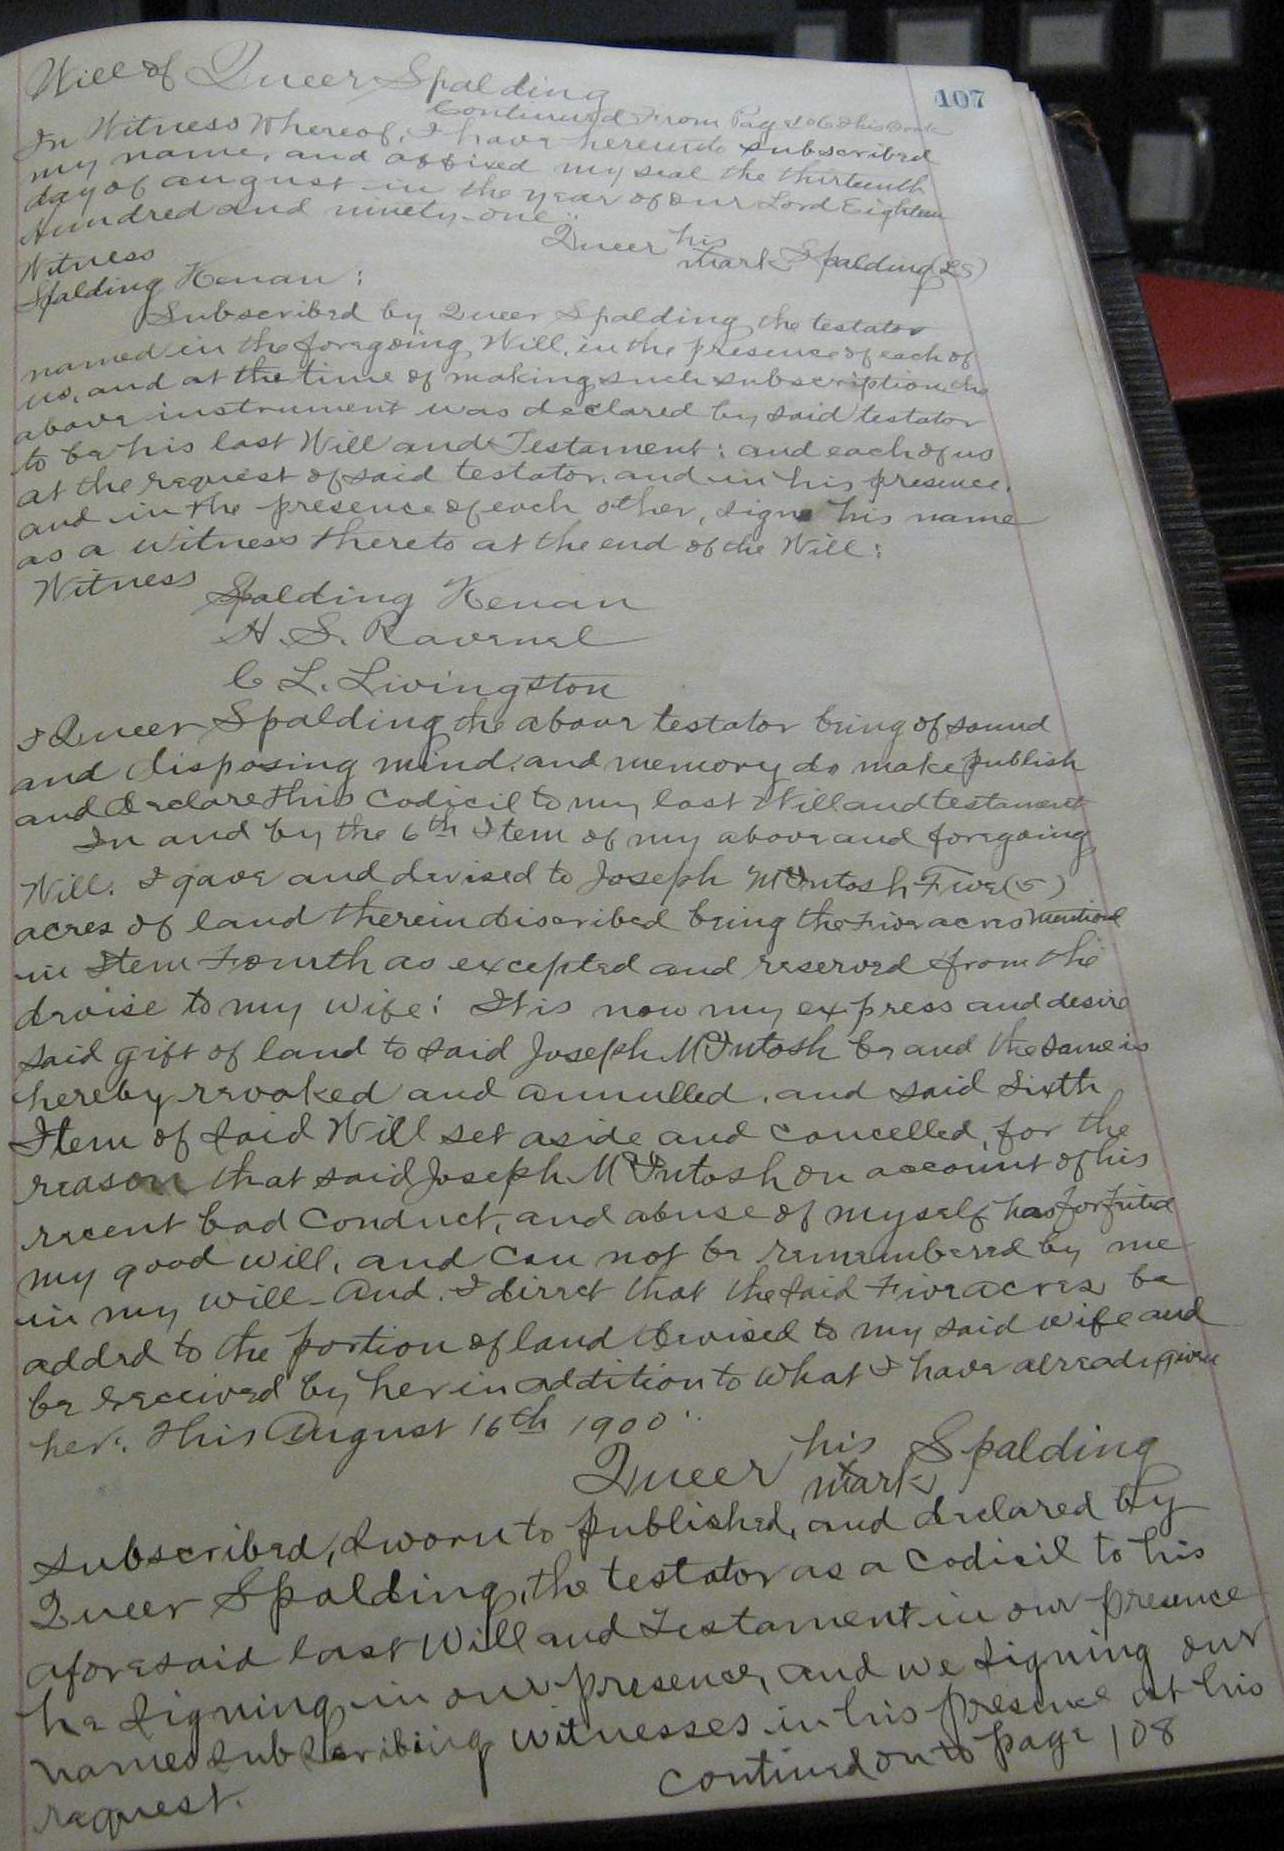 107
Will of Queer Spalding
Continued From Page 106 this Book
In Witness Whereof, I have hereunto subscribed
my name, and affixed my seal the thirteenth
day of august in the year of our Lord Eighteen
Hundred and ninety-one"
Queer his mark Spalding (LS)
Witness
Spalding Kenan :
Subscribed by Queer Spalding the testator
named in the foregoing Will, in the presence of each of
us, and at the time of making such subscription the
above instrument was declared by said testator
to be his last Will and Testament: and each of us
at the request of said testator, and in his presence,
and in the presence of each other, signe his name
as a witness thereto at the end of the Will:
Witness
Spalding Kenan
H. S. Ravenel
C L. Livingston
I Queer Spalding the above testator being of sound
and disposing mind, and memory do make publish
and declare this codicil to my last Will and testament
In and by the 6th Item of my above and foregoing
Will. I gave and devised to Joseph McIntosh Five (5)
acres of land therein discribed being the Five acres mentiond
in Item Fourth as excepted and reserved from the
devise to my wife: It is now my express and desire
said gift of land to said Joseph McIntosh be and the same is
hereby revoked and annulled, and said Sixth
Item of said Will set aside and cancelled, for the
reason that said Joseph McIntosh on account of his
recent bad conduct, and abuse of myself has forfeited
my good will, and can not be remembered by me
in my will - And. I direct that the said Five acres be
added to the portion of land devised to my said wife and
be received by her in addition to what I have already given
her. This August 16th 1900".
Queer his x mark Spalding
Subscribed, Sworn to published, and declared by
Queer Spalding, the testator as a codicil to his
aforesaid last Will and Testament in our presence
he signing in our presence, and we signing our
names subscribing witnesses in his presence at his
request.
Continued on to page 108